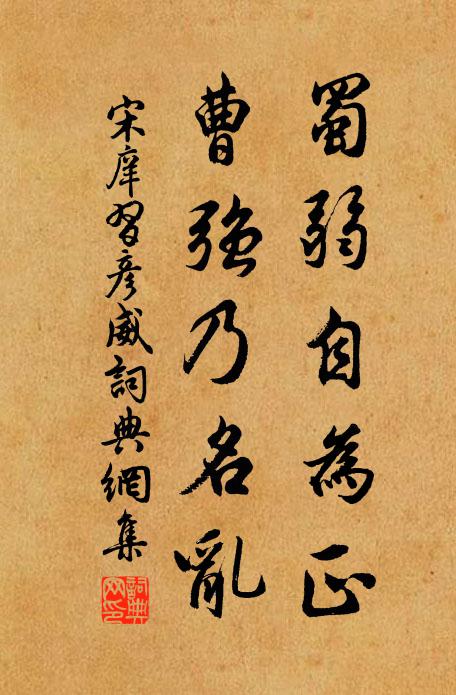 蜀弱自為正
曹強乃名亂
宋庠習彥威詞典網集
詞典网印